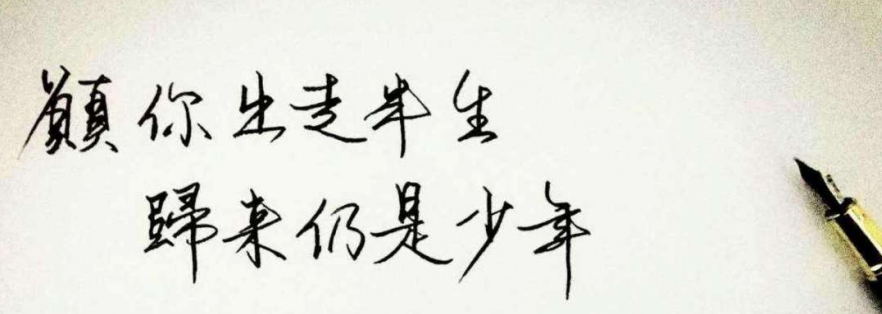 願你出走半生
歸来仍是少年